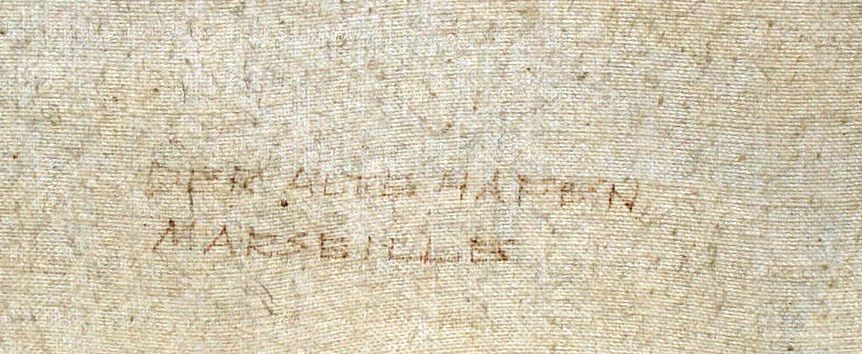 DER ALTE HAFEN
MARSEILLE